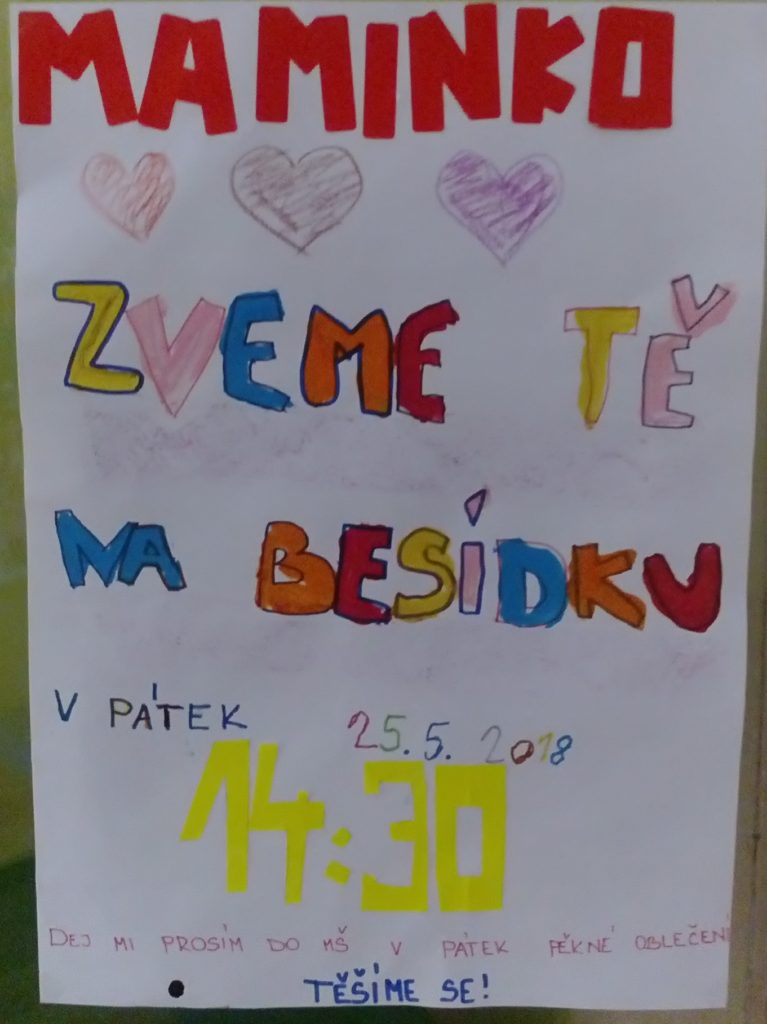 MAMINKO
ZVEME TĚ
NA BESÍDKU
V PÁTEK 25.5. 2018
14:30
DEJ MI PROSÍM DO MŠ V PÁTEK PĚKNÉ OBLEČENÍ
TĚŠÍME SE!